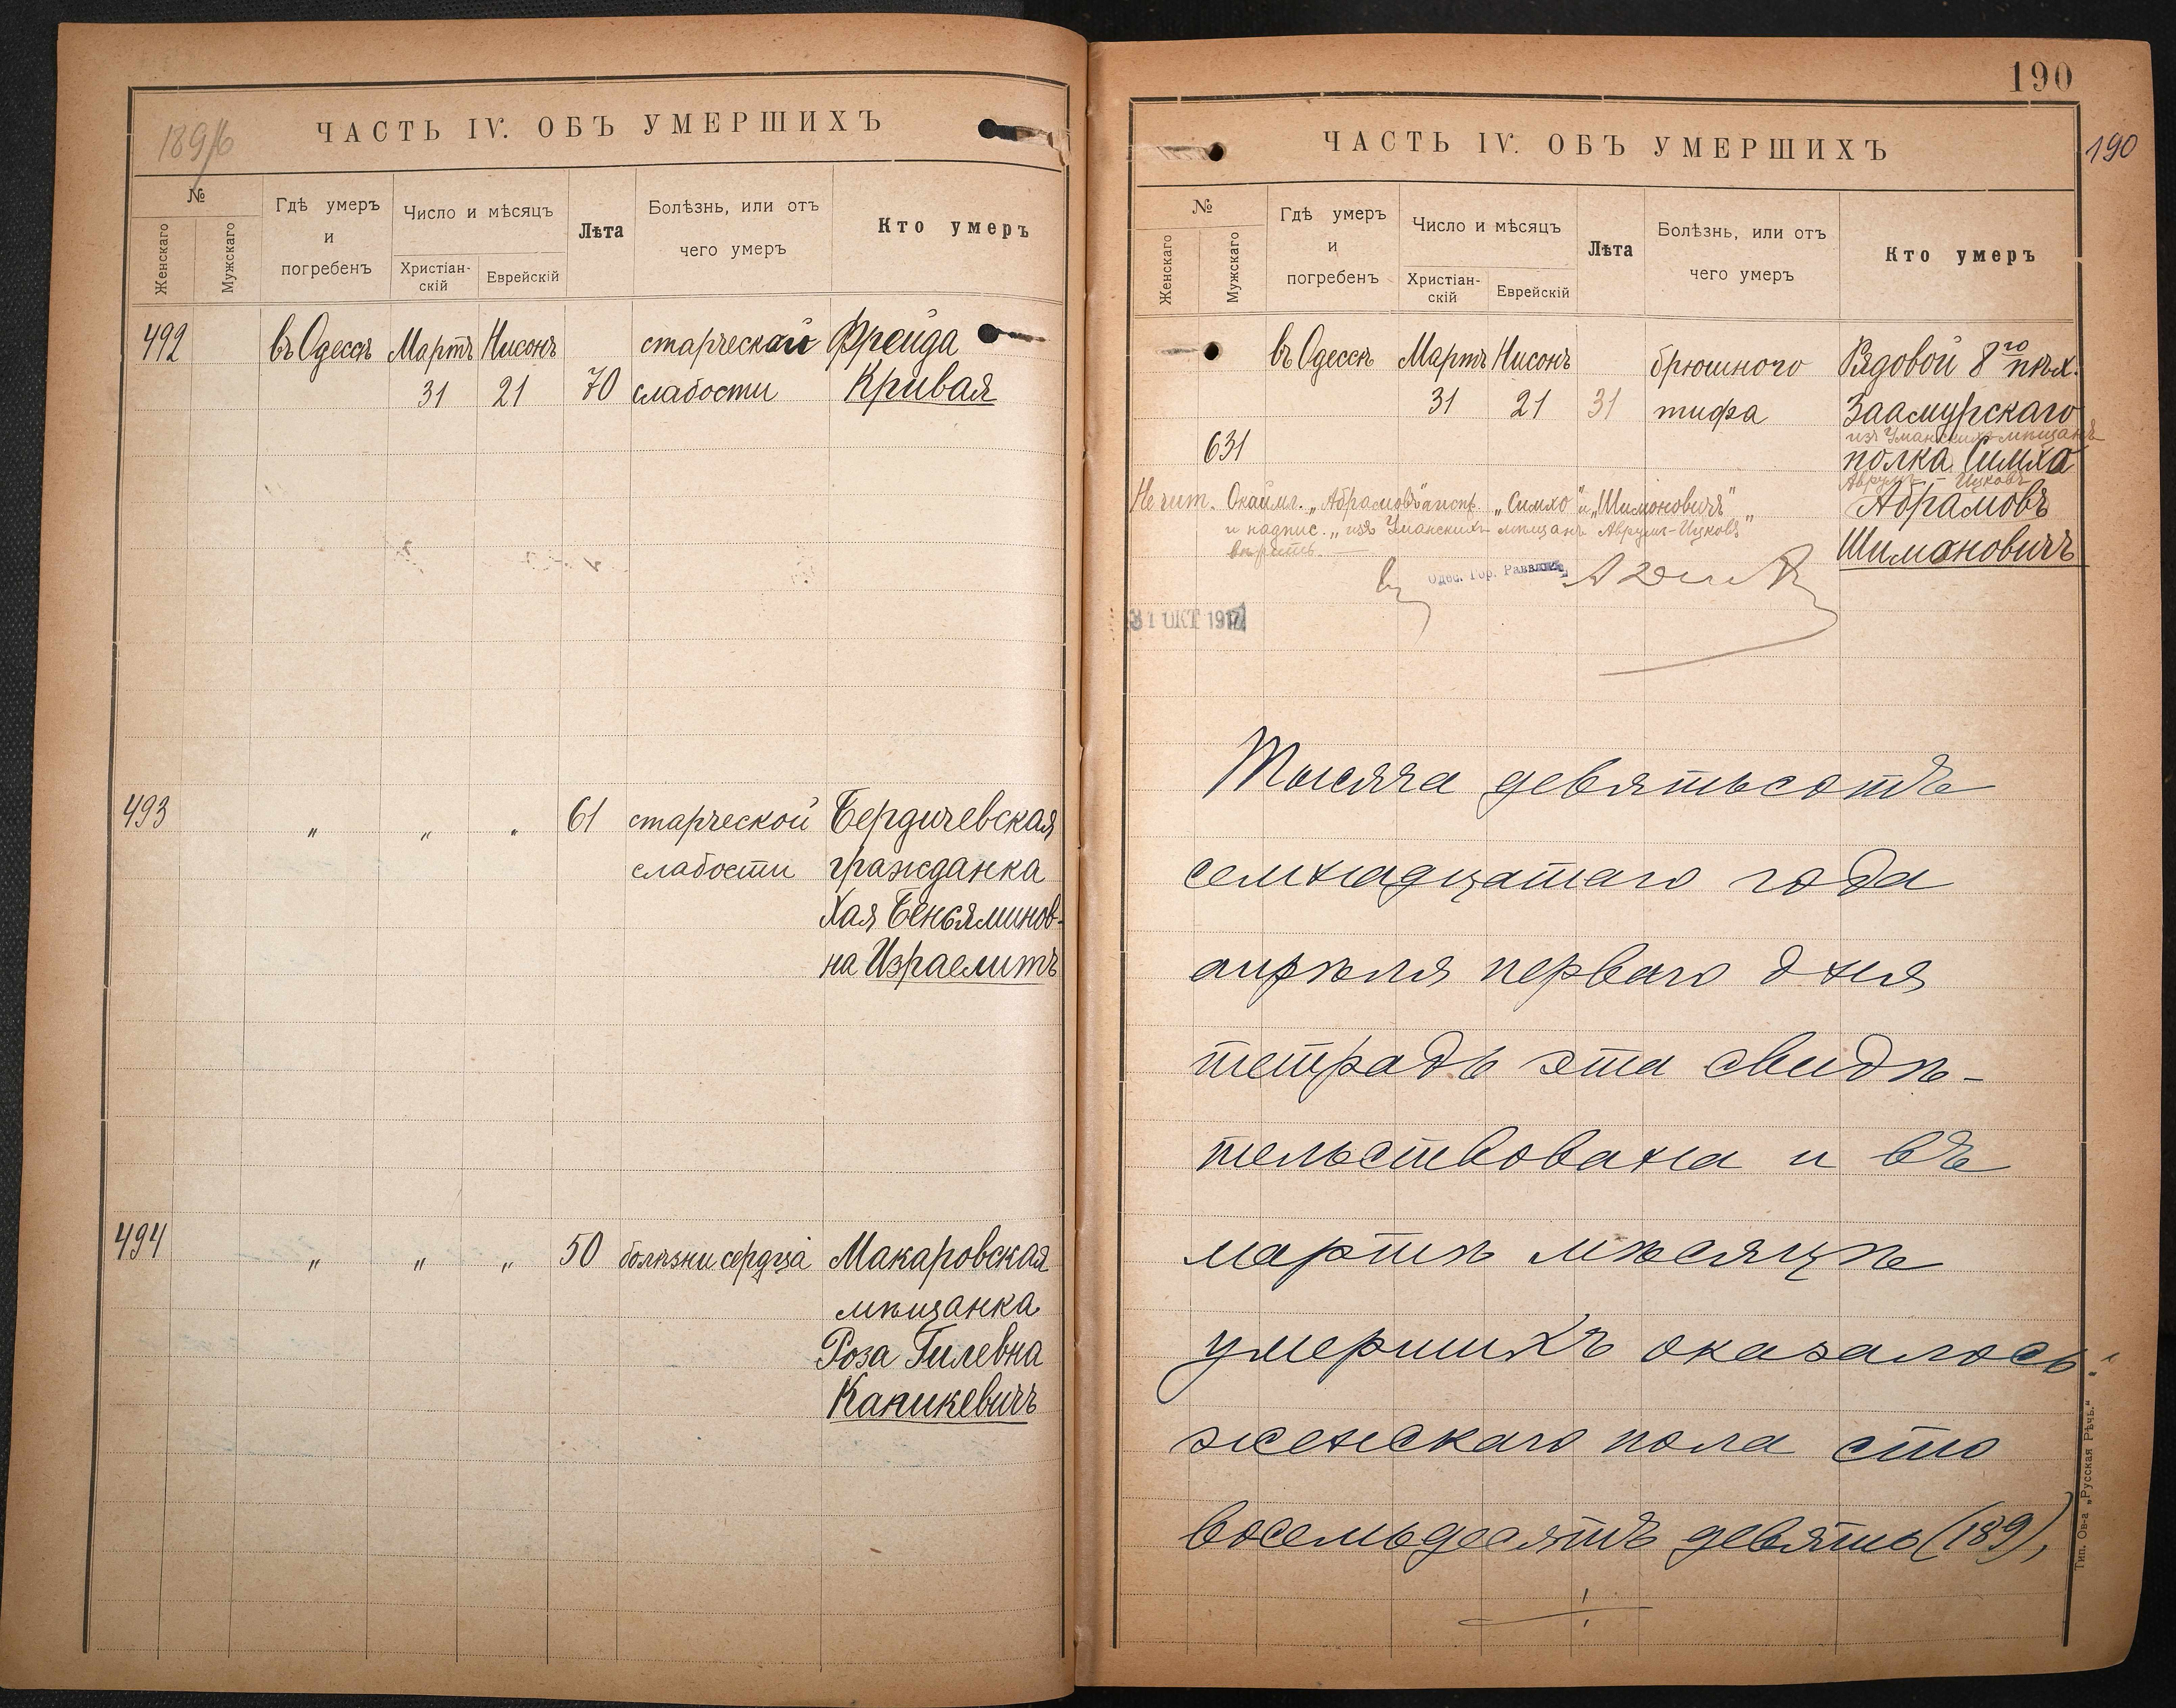 189/6
ЧАСТЬ IV. ОБЪ УМЕРШИХЪ
№
Женскаго
Мужскаго
Гдѣ умеръ
и
погребенъ
Число и мѣсяцъ
Христіан-
скій
Еврейскій
Лѣта
Болѣзнь, или отъ
чего умеръ
Кто умеръ
492 въ Одессѣ Мартъ Нисонъ старческой Фрейда
31 21 70 слабости Кривая
493 " " " 61 старческой Бердичевская
слабости гражданка
Хая Беньяминов-
на Израелитъ
494 " " " 50 болѣзни сердца Макаровская
мѣщанка
Роза Гилевна
Капикевичъ
190
190
ЧАСТЬ IV. ОБЪ УМЕРШИХЪ
№
Женскаго
Мужскаго
Гдѣ умеръ
и
погребенъ
Число и мѣсяцъ
Христіан-
скій
Еврейскій
Лѣта
Болѣзнь, или отъ
чего умеръ
Кто умеръ
въ Одессѣ Мартъ Нисонъ брюшного Рядовой 8го пѣх.
31 21 31 тифа Заамурскаго
изъ Уманскихъ мѣщанъ
631 полка Симха
Аврумъ-Ицковъ
Абрамовъ
Шимановичъ
Не чит. „Абрамовъ" „Симхо" и „Шимоновичъ"
и надпис. „изъ Уманскихъ мѣщанъ Аврумъ-Ицковъ"
вѣрить.
Одес. Гор. Раввинъ
31 ОКТ 1917
Тысяча девятьсотъ
семнадцатаго года
апрѣля перваго дня
тетрадь эта свидѣ-
тельствована и въ
мартѣ мѣсяцѣ
умершихъ оказалось:
женскаго пола сто
восемьдесятъ девять (189),
Тип. Ов-а „Русская Рѣчь."